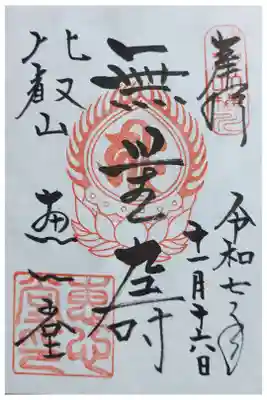 奉拝
令和七年
十一月十六日
無量壽
比叡山
恵心堂